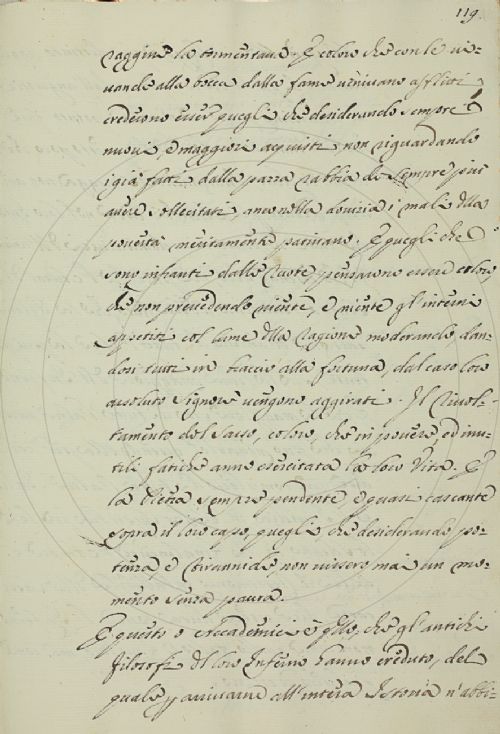 119.
raggine la tormentava. E coloro che con le vi-
vande alla bocca dalla fame venivano afflitti
credevono esser quegli che desiderando sempre
nuovi, e maggiori acquisti, non riguardando
i già fatti dalla pazza rabbia di sempre più
avere sollecitati anco nella dovizia i mali dlla
povertà meritamente pativano. E quegli che
sono infranti dalle ruote, pensavano essere coloro,
che non prevedendo niente, e niente gl'interni
appetiti col lume dlla ragione moderando, dan-
dosi tutti in braccio alla fortuna, dal caso loro
assoluto signore vengono aggirati. Il rivol-
tamento del sasso, coloro, che in povere, ed inu-
tili fatiche anno esercitata la loro vita. E
la pietra sempre pendente, e quasi cascante
sopra il loro capo, quegli che desiderando po-
tenza, e tirannide, non vissero mai un mo-
mento senza paura.
E questo o Accademici è qllo, che gl'antichi
filosofi dl loro Inferno hanno creduto, del
quale p arrivarne all'intera Istoria n'abbi-